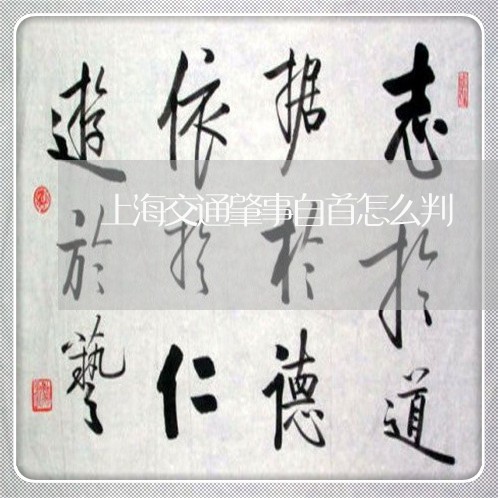 志於道
据於德
依於仁
遊於藝
上海交通肇事自首怎么判